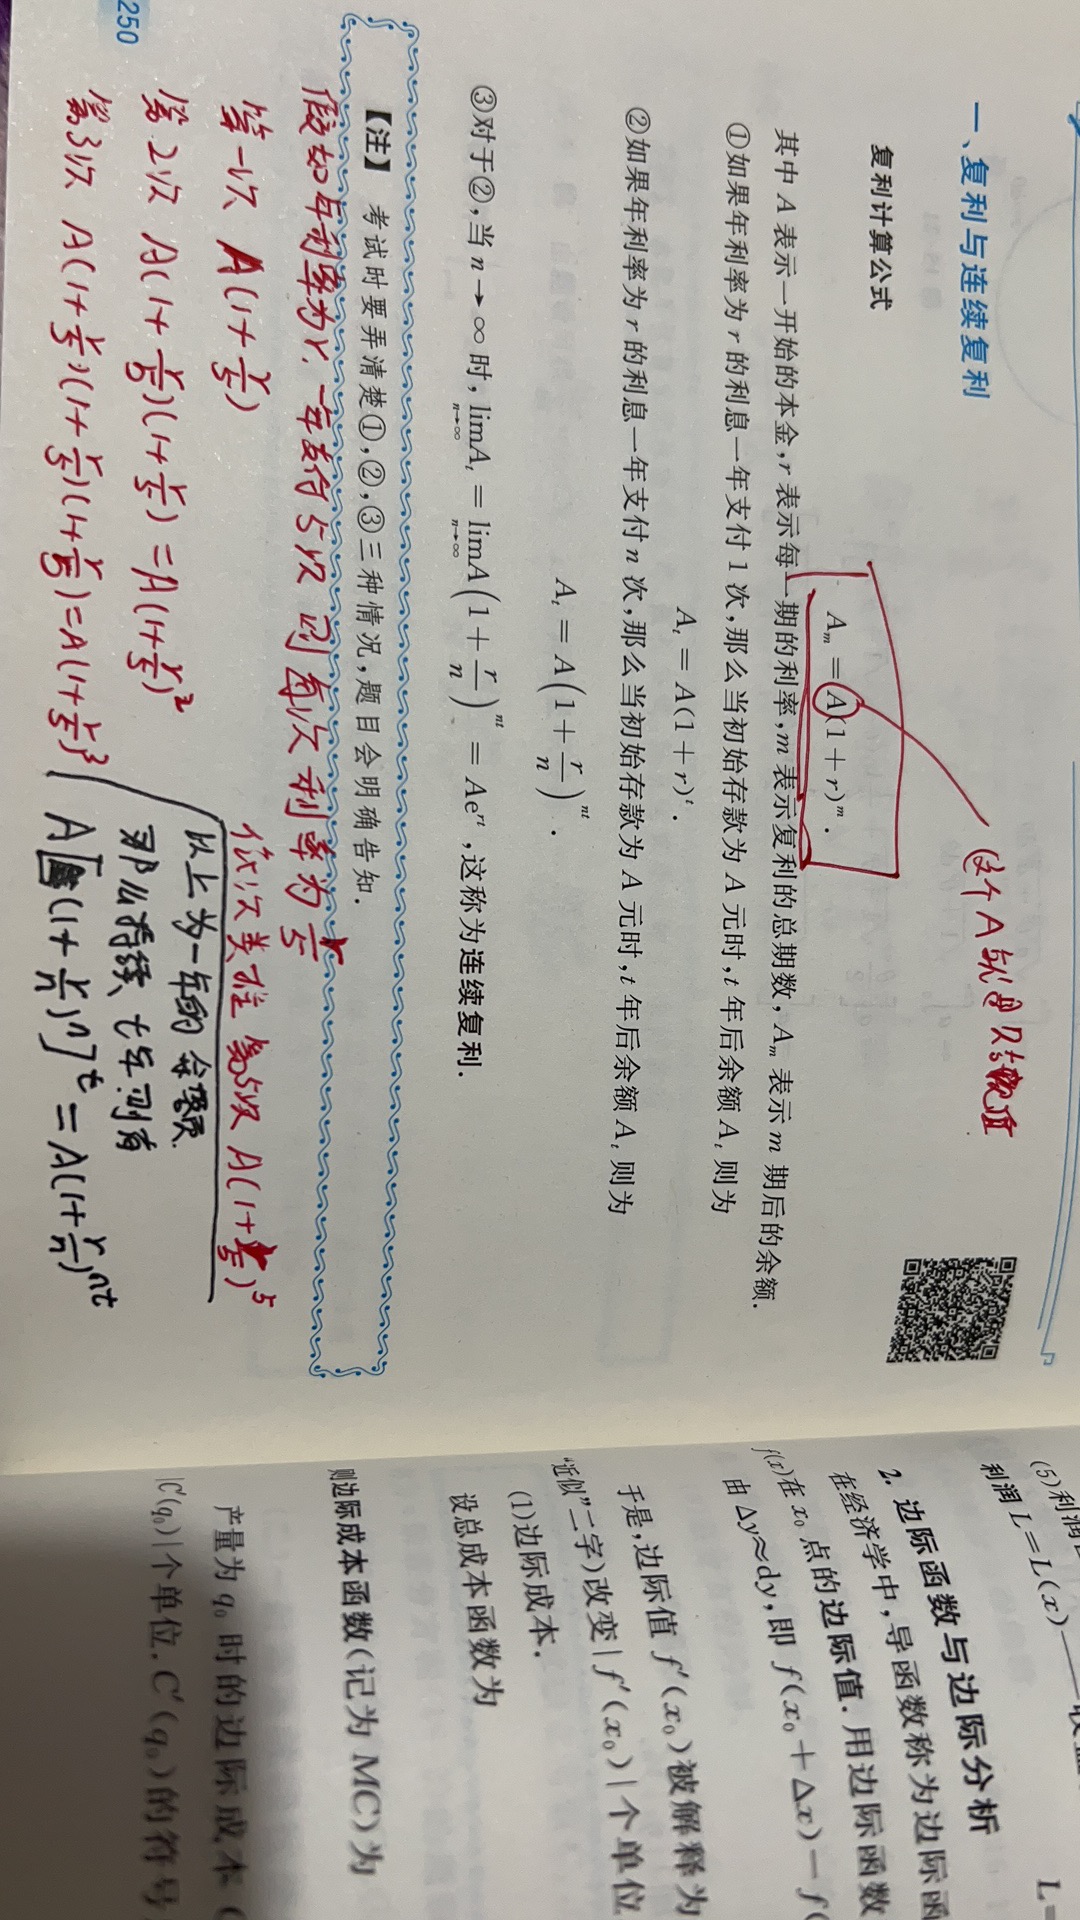 一、复利与连续复利
复利计算公式
A_m = A(1 + r)^m .
这个A就是只有现值
其中 A 表示一开始的本金,r 表示每一期的利率,m 表示复利的总期数,A_m 表示 m 期后的余额.
①如果年利率为 r 的利息一年支付 1 次,那么当初始存款为 A 元时,t 年后余额 A_t 则为
A_t = A(1 + r)^t .
②如果年利率为 r 的利息一年支付 n 次,那么当初始存款为 A 元时,t 年后余额 A_t 则为
A_t = A(1 + r/n)^{nt} .
③对于②,当 n→∞ 时, lim_{n→∞} A_t = lim_{n→∞} A(1 + r/n)^{nt} = Ae^{rt} ,这称为连续复利.
【注】 考试时要弄清楚①,②,③三种情况,题目会明确告知.
假如年利率为r.一年支付5次 则每次利率为 r/5
第一次 A(1+r/5)
第2次 A(1+r/5)(1+r/5) = A(1+r/5)^2
第3次 A(1+r/5)(1+r/5)(1+r/5) = A(1+r/5)^3
依次类推 第5次 A(1+r/5)^5
以上为一年的余额.
那么持续 t年.则有
A[(1+r/n)^n]^t = A(1+r/n)^{nt}
250
(5)利润
利润 L=L(x)——收益
L=
2. 边际函数与边际分析
在经济学中,导函数称为边际函
f(x)在 x_0 点的边际值.用边际函数
由 Δy≈dy,即 f(x_0+Δx)-f(
于是,边际值 f′(x_0)被解释为
“近似”二字)改变|f′(x_0)|个单位
(1)边际成本.
设总成本函数为
则边际成本函数(记为 MC)为
产量为 q_0 时的边际成本(
|C′(q_0)|个单位.C′(q_0)的符号